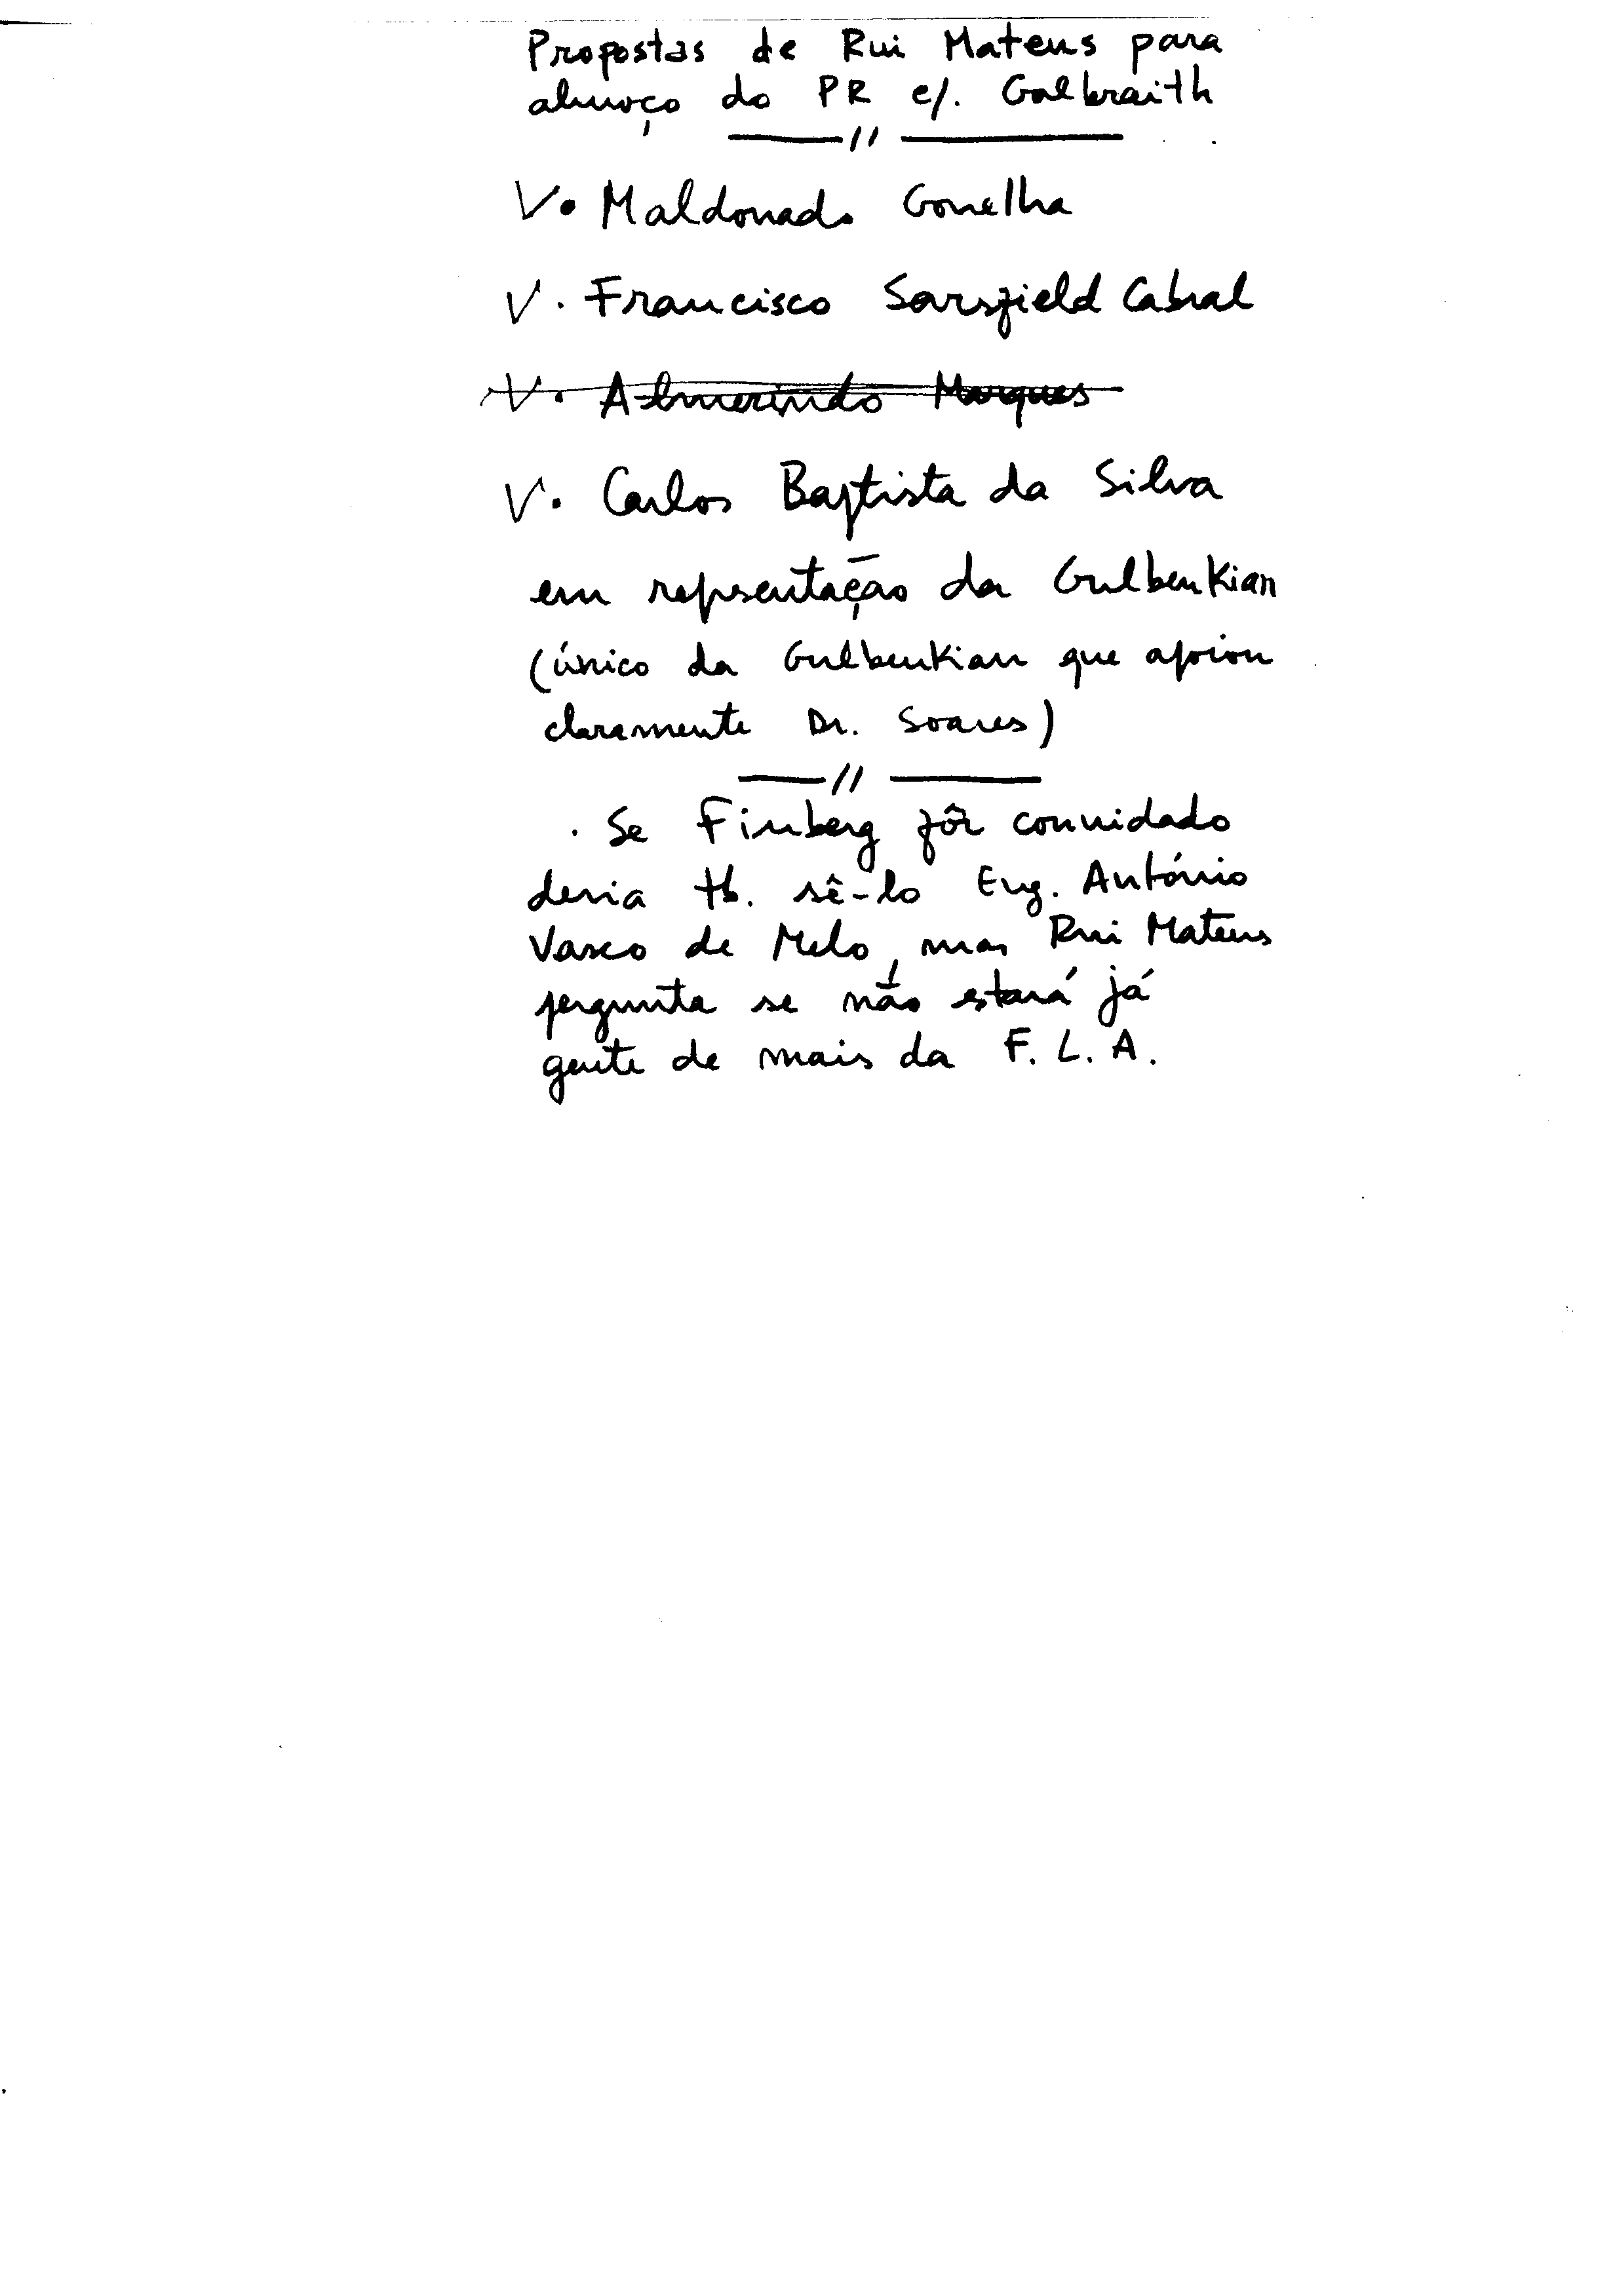 Propostas de Rui Mateus para
almoço do PR c/. Galbraith
—//—
V • Maldonado Gonelha
V • Francisco Sarsfield Cabral
V • Almerindo Marques
V • Carlos Baptista da Silva
em representação da Gulbenkian
(único da Gulbenkian que apoiou
claramente Dr. Soares)
—//—
• Se Finberg fôr convidado
devia tb. sê-lo Eng. António
Vasco de Melo, mas Rui Mateus
pergunta se não estará já
gente de mais da F. L. A.